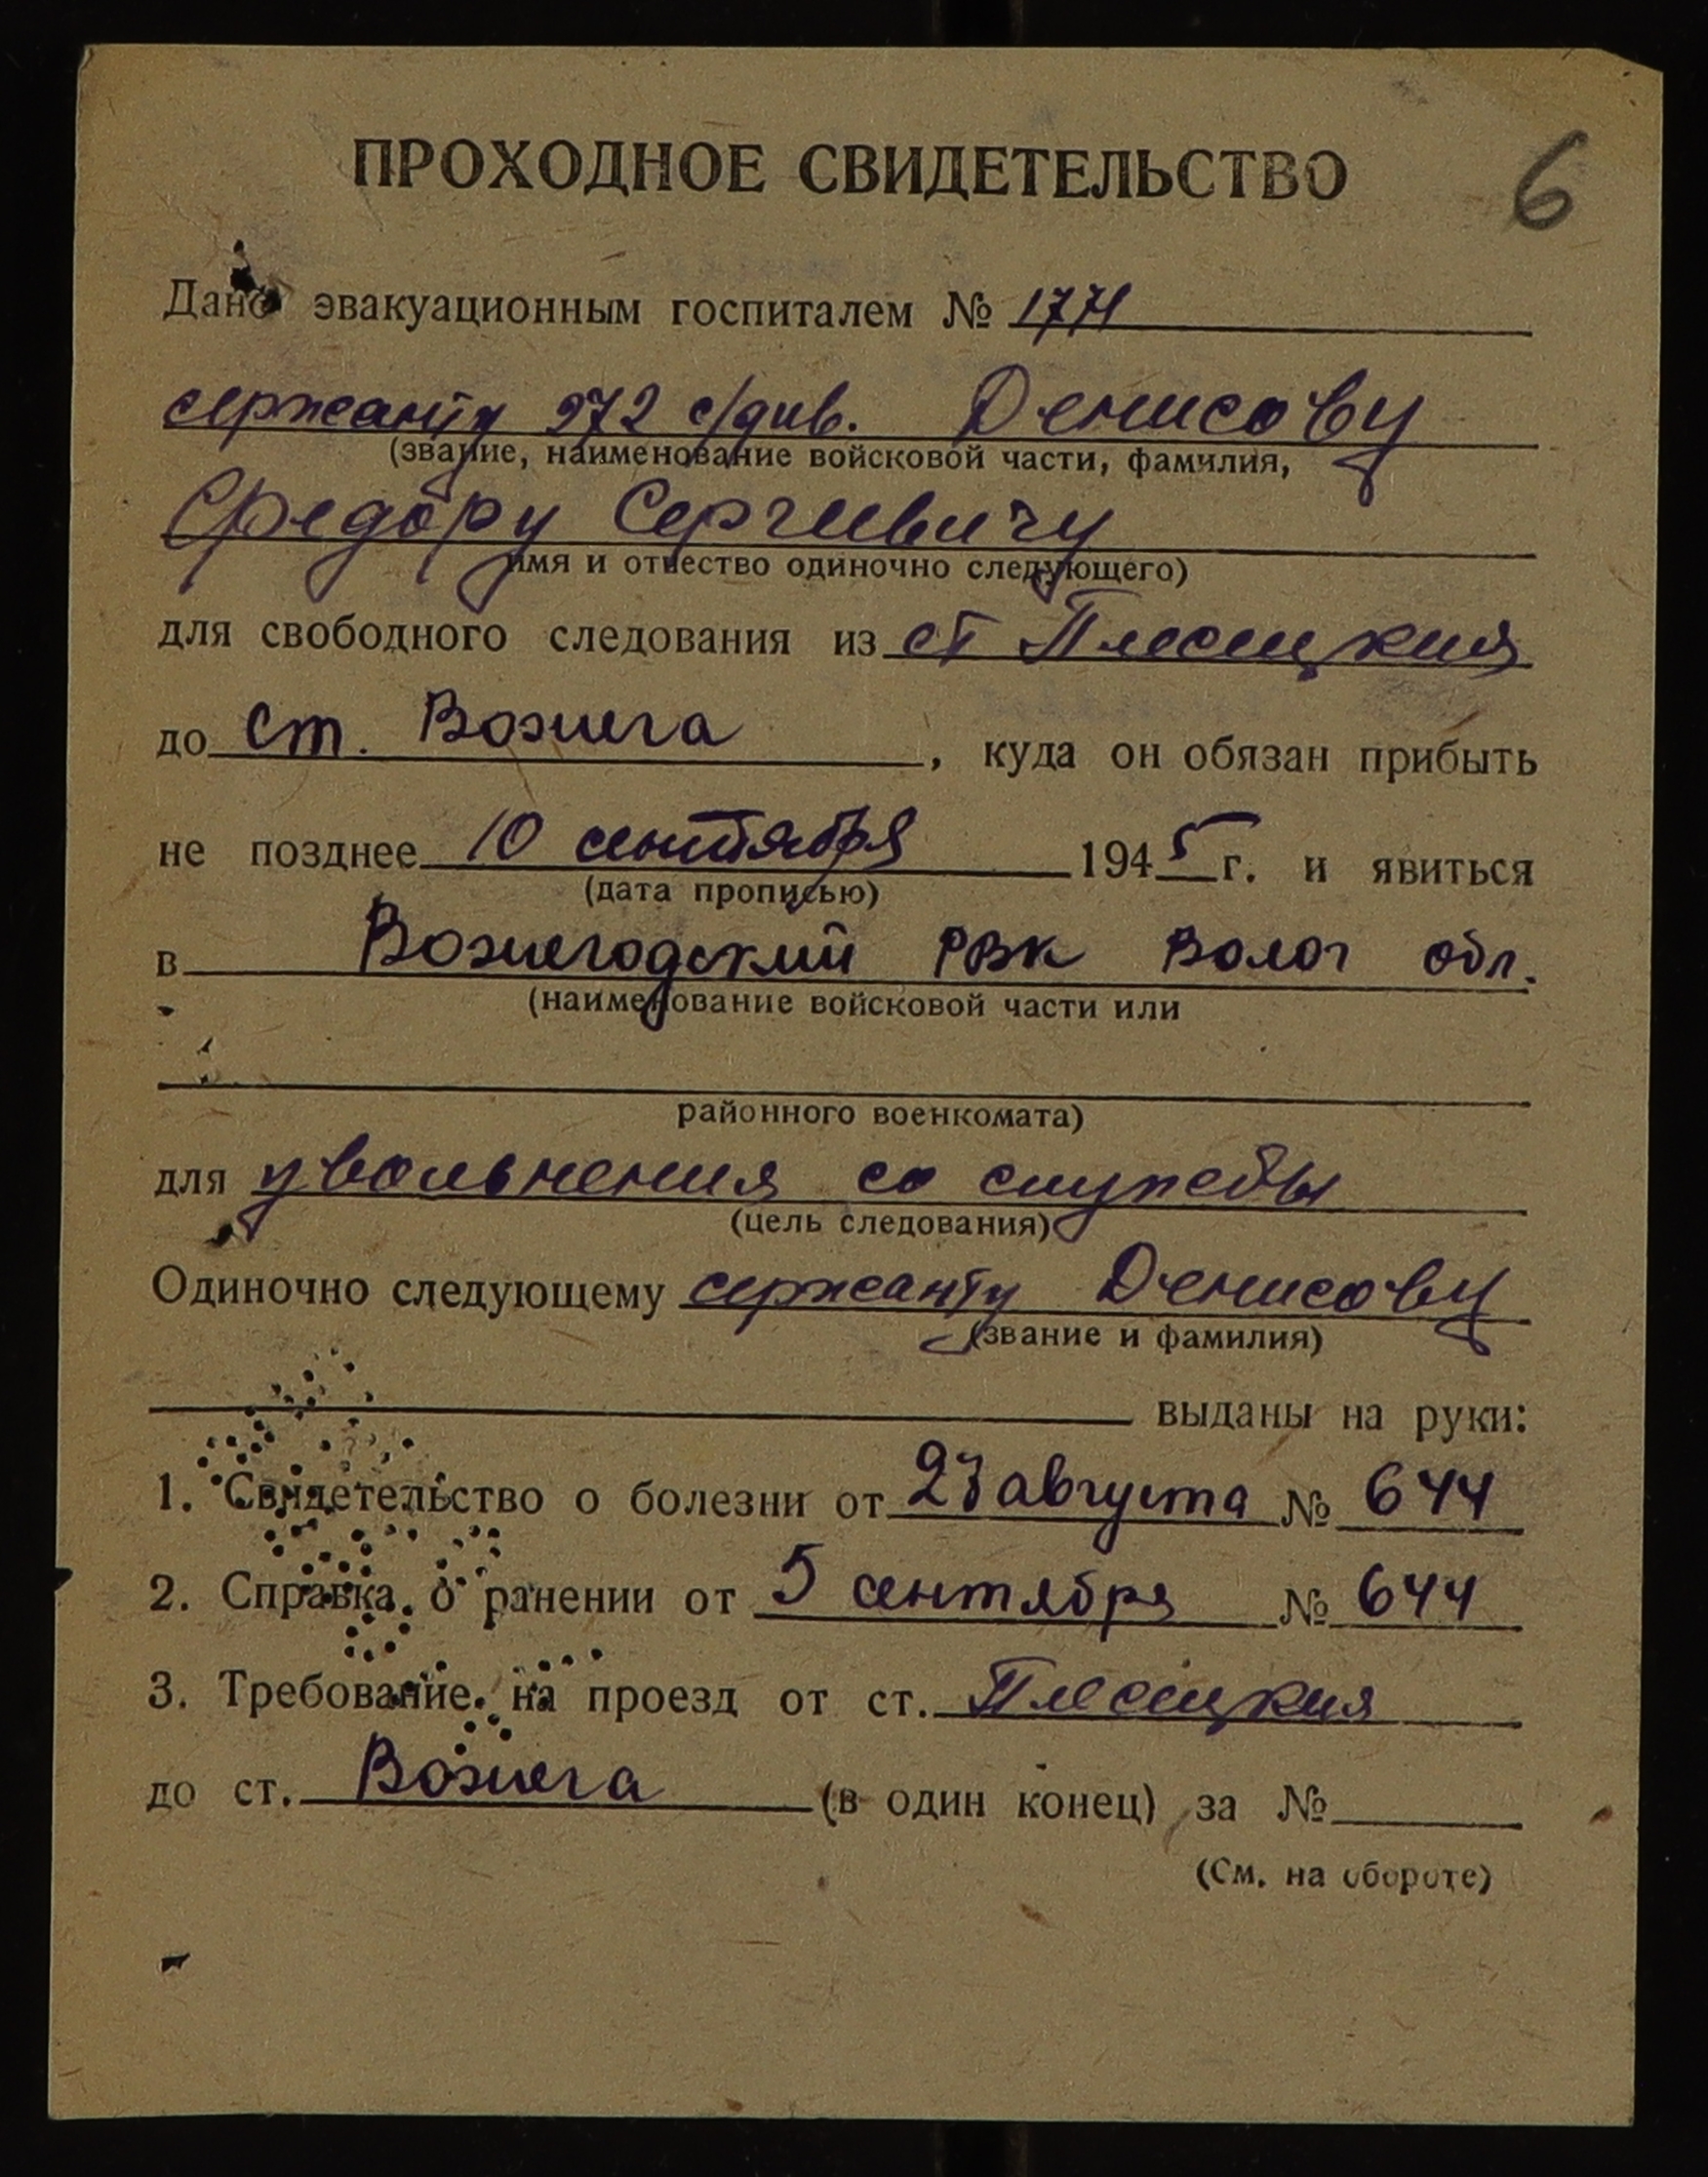 ПРОХОДНОЕ СВИДЕТЕЛЬСТВО
6
Дано эвакуационным госпиталем № 1771
сержанту 972 с/див. Денисову
(звание, наименование войсковой части, фамилия,
Федору Сергеевичу
имя и отчество одиночно следующего)
для свободного следования из ст Плесецкия
до ст. Вожега, куда он обязан прибыть
не позднее 10 сентября 1945 г. и явиться
(дата прописью)
в Вожегодский РВК Волог обл.
(наименование войсковой части или
районного военкомата)
для увольнения со службы
(цель следования)
Одиночно следующему сержанту Денисову
(звание и фамилия)
выданы на руки:
1. Свидетельство о болезни от 23 августа № 644
2. Справка о ранении от 5 сентября № 644
3. Требование на проезд от ст. Плесецкия
до ст. Вожега (в один конец) за №
(См. на обороте)